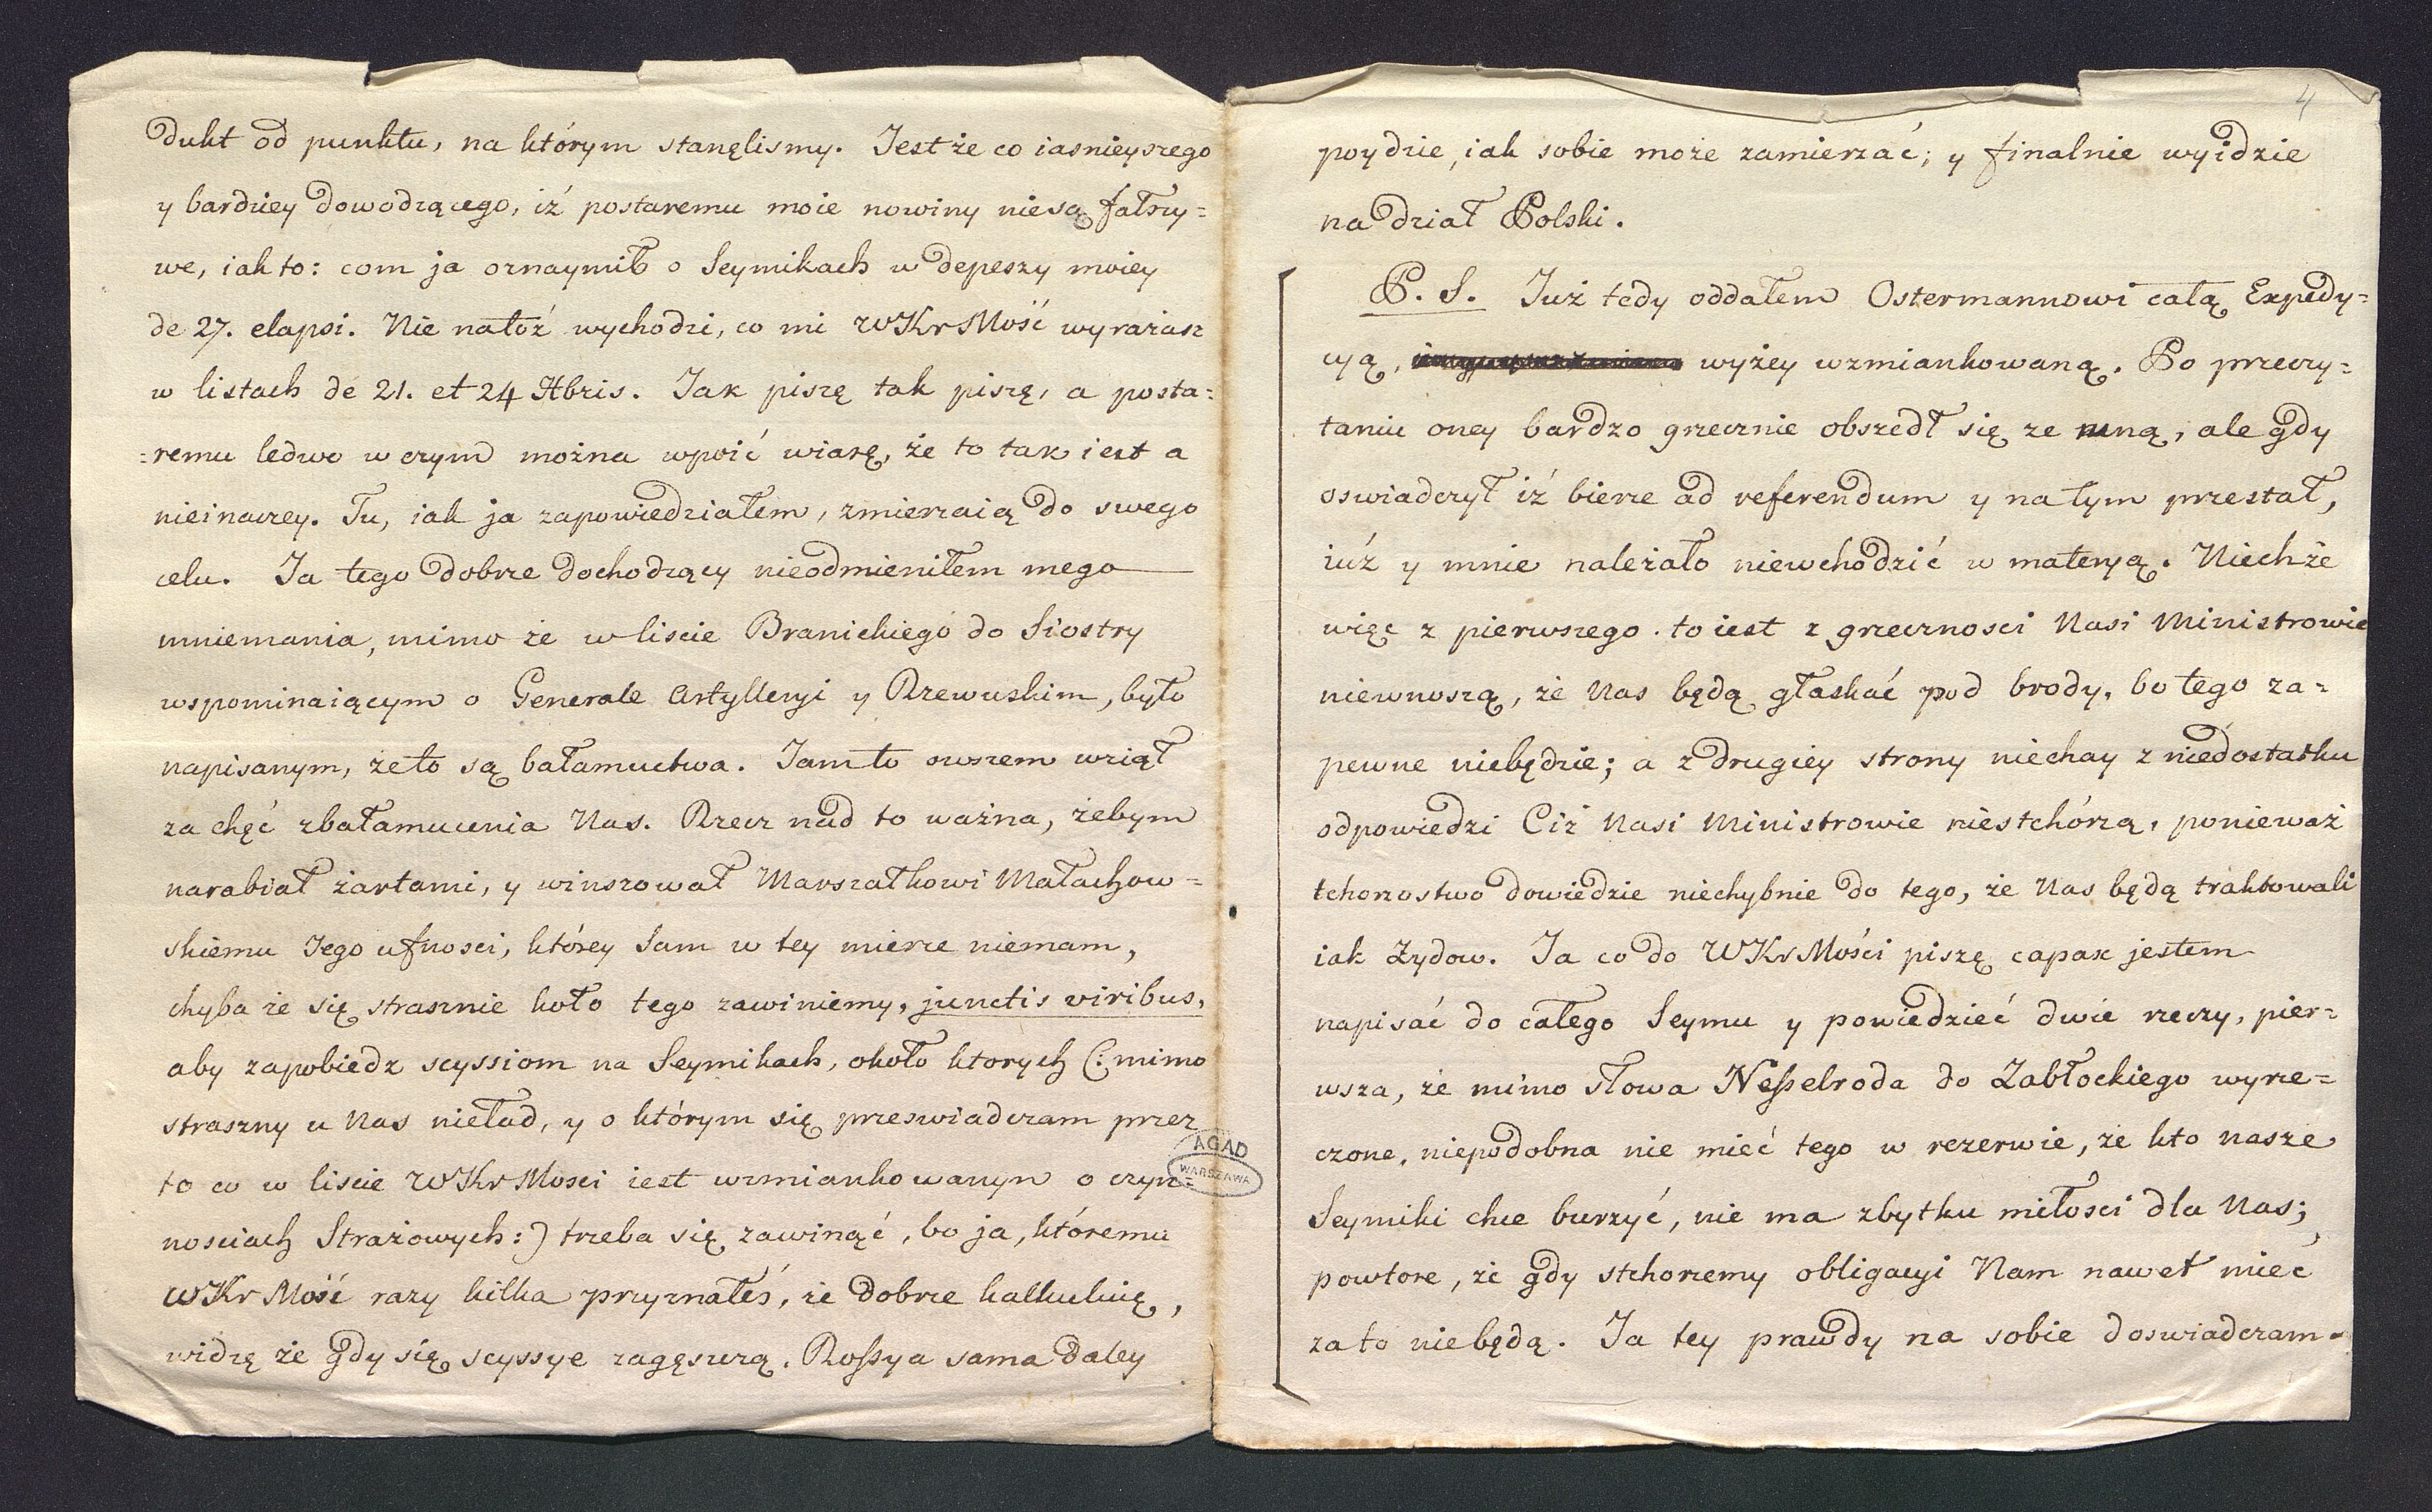 dukt od punktu, na którym stanęlismy. Jest że co iasnieyszego
y bardziey dowodzącego, iż postaremu moie nowiny niesą fałszy=
we, iak to: com ja oznaymił o Seymikach w depeszy moiey
de 27. elapsi. Nie natóż wychodzi, co mi WKrMość wyrażasz
w listach de 21. et 24 Xbris. Jak piszę tak piszę, a posta=
=remu ledwo w czym można wpoić wiarę, że to tak iest a
nieinaczey. Tu, iak ja zapowiedziałem, zmierzaią do swego
celu. Ja tego dobrze dochodzący nieodmieniłem mego
mniemania, mimo że w liscie Branickiego do Siostry
wspominaiącym o Generale Artylleryi y Rzewuskim, było
napisanym, że to są bałamuctwa. Jam to owszem wziął
za chęć zbałamucenia Nas. Rzecz nad to ważna, żebym
narabiał żartami, y winszował Marszałkowi Małachow=
skiemu Jego ufnosci, którey Sam w tey mierze niemam,
chyba że się strasznie koło tego zawiniemy, junctis viribus,
aby zapobiedz scyssiom na Seymikach, około ktorych (: mimo
straszny u Nas nieład, y o którym się przeswiadczam przez
to co w liscie WKrMosci iest wzmiankowanym o czyn=
nosciach Strażowych :) trzeba się zawinąć, bo ja, któremu
WKrMość razy kilka przyznałeś, że dobrze kalkuluię,
widzę że gdy się scyssye zagęszczą, Rossya sama daley
4
poydzie, iak sobie może zamierzać; y finalnie wyidzie
na dział Polski.
P. S. Już tedy oddałem Ostermannowi całą Expedy=
cyą, wyżey wzmiankowaną. Po przeczy=
taniu oney bardzo grzecznie obszedł się ze mną, ale gdy
oswiadczył iż bierze ad referendum y na tym przestał,
iuż y mnie należało niewchodzić w materyą. Niechże
więc z pierwszego to iest z grzecznosci Nasi Ministrowie
niewnoszą, że Nas będą głaskać pod brody, bo tego za=
pewne niebędzie; a z drugiey strony niechay z niedostatku
odpowiedzi Ciż Nasi Ministrowie niestchórzą, ponieważ
tchorzostwo dowiedzie niechybnie do tego, że Nas będą traktowali
iak Zydow. Ja co do WKrMości piszę capax jestem
napisać do całego Seymu y powiedzieć dwie rzeczy, pier=
wsza, że mimo słowa Nesselroda do Zabłockiego wyrze=
czone, niepodobna nie mieć tego w rezerwie, że kto nasze
Seymiki chce burzyć, nie ma zbytku miłości dla Nas;
powtore, że gdy stchorzemy obligacyi Nam nawet mieć
za to niebędą. Ja tey prawdy na sobie doswiadczam
AGAD
WARSZAWA